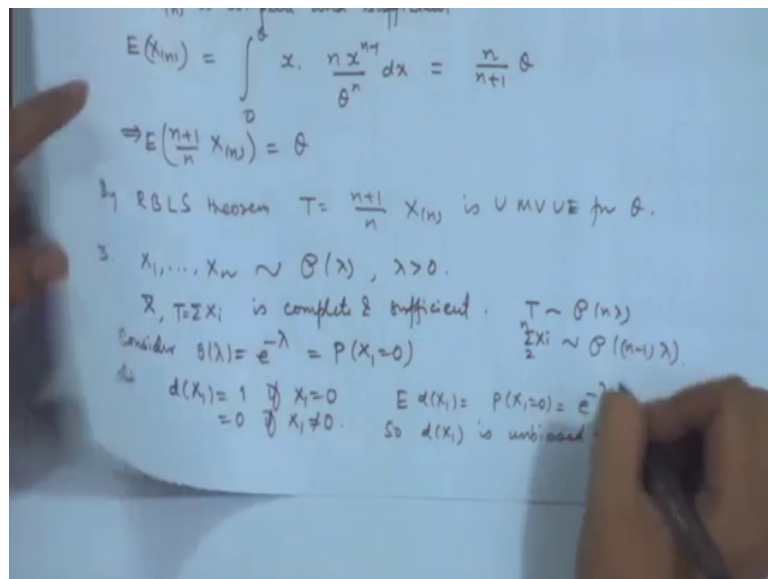 is complete and sufficient
E(X(n)) = ∫₀^θ x. n x^(n-1) / θ^n dx = n/(n+1) θ
⇒ E(n+1/n X(n)) = θ
By RBLS theorem T = n+1/n X(n) is UMVUE for θ.
3. X₁,..., Xn ~ P(λ), λ>0.
X̄, T=ΣXi is complete & sufficient. T ~ P(nλ)
Consider g(λ) = e^-λ = P(X₁=0) Σ₂ⁿ Xi ~ P((n-1)λ).
d(X₁) = 1 if X₁=0 E d(X₁) = P(X₁=0) = e^-λ
= 0 if X₁≠0. So d(X₁) is unbiased